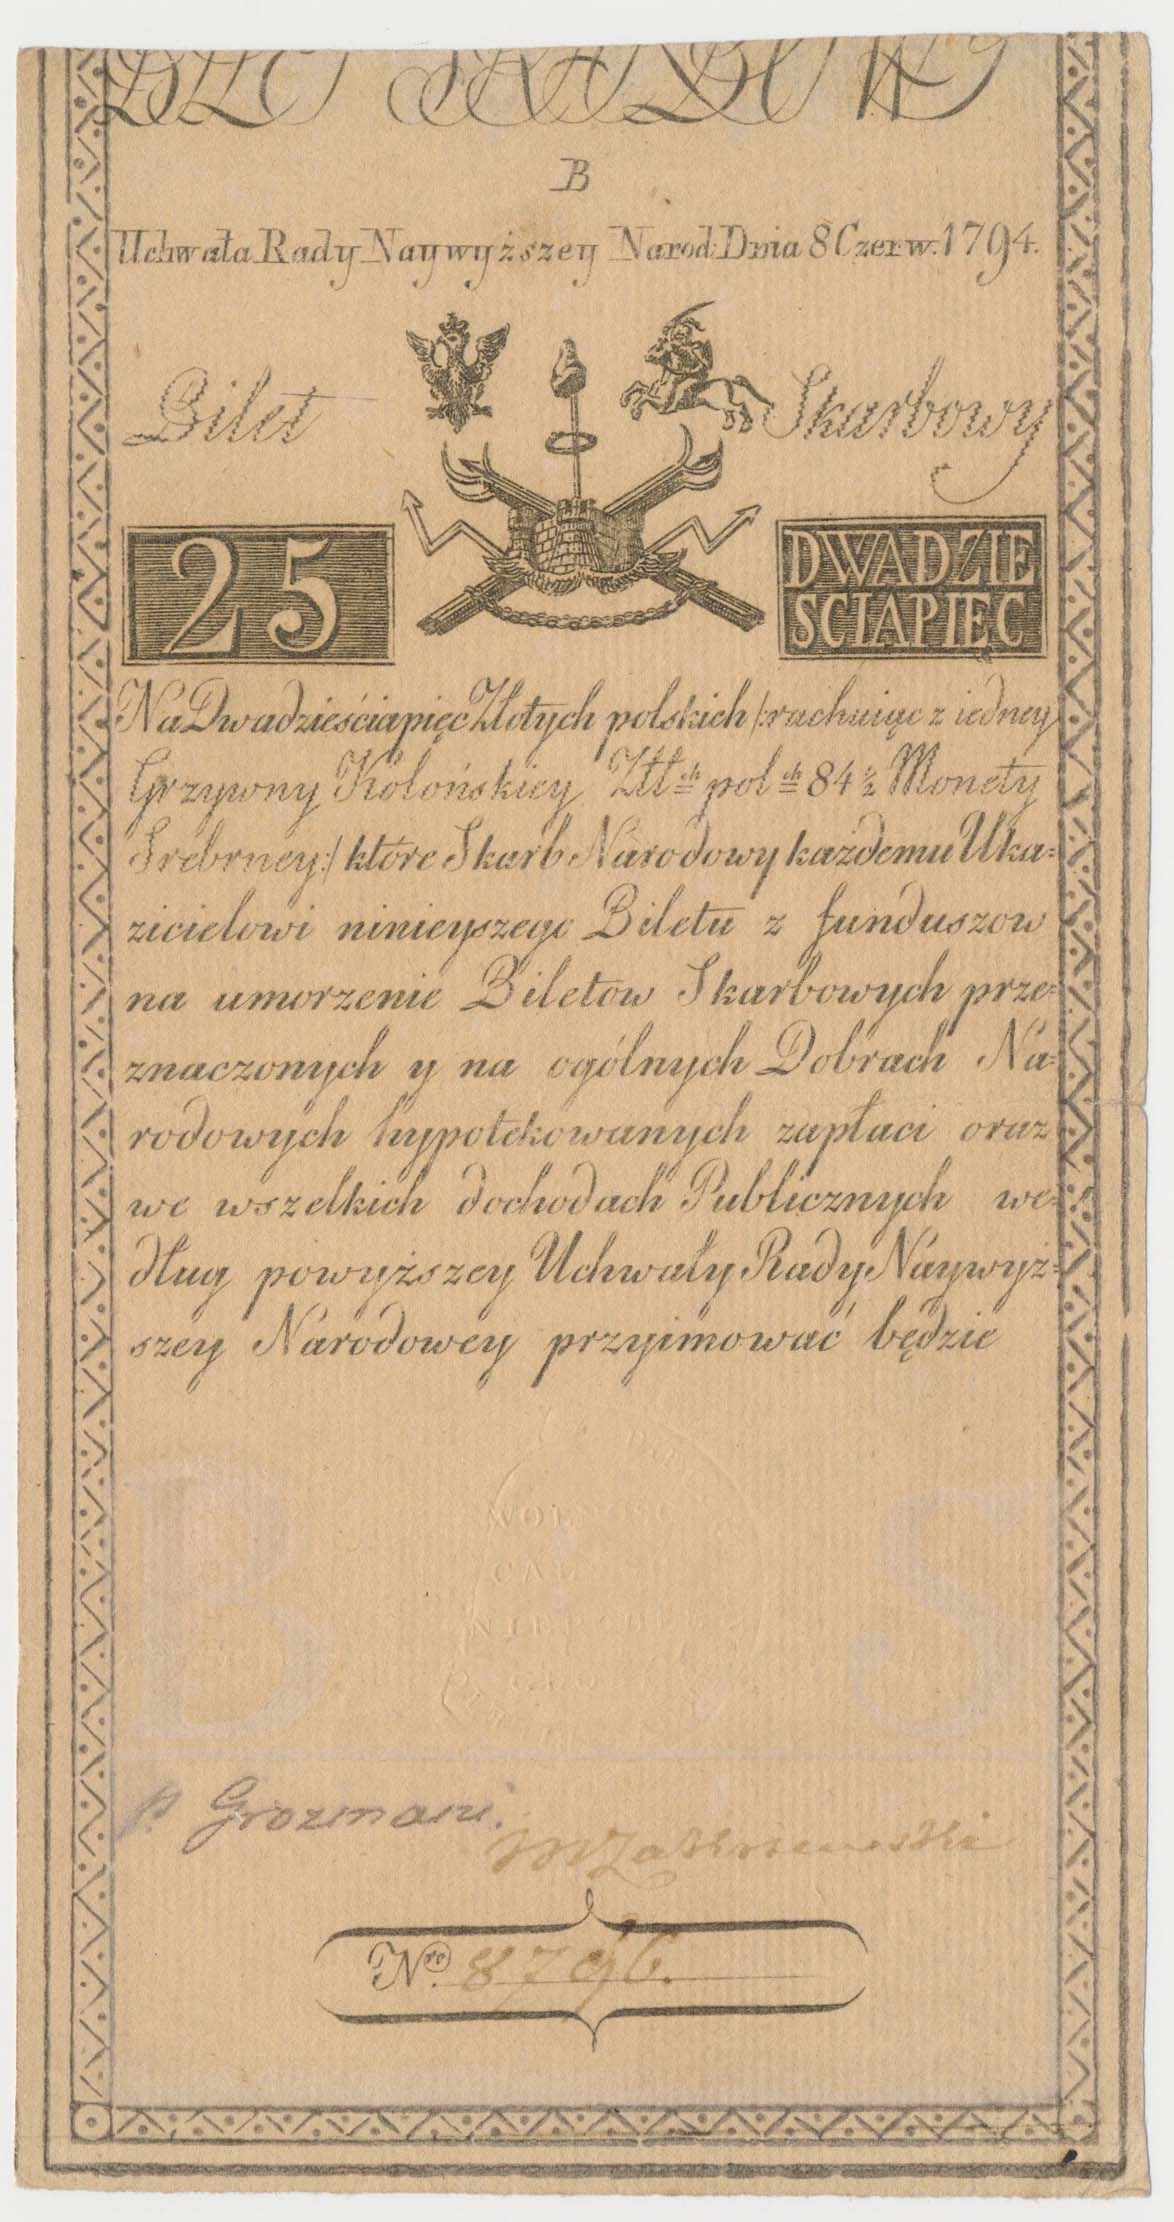 B
Uchwała Rady Naywyższey Narod: Dnia 8 Czerw: 1794.
Bilet Skarbowy
25
DWADZIE
SCIAPIĘC
Na Dwadzieściapięc Złotych polskich /:rachuiąc z iedney
Grzywny Kolońskiey Złł ch pol ch 84 ½ Monety
Srebrney:/ które Skarb Narodowy każdemu Uka=
zicielowi ninieyszego Biletu z funduszow
na umorzenie Biletow Skarbowych prze=
znaczonych y na ogólnych Dobrach Na=
rodowych hypotekowanych zapłaci oraz
we wszelkich dochodach Publicznych we=
dług powyższey Uchwały Rady Naywyż=
szey Narodowey przyimować będzie
WOLNOSC
CAL
NIEP
B S
p. Grozmani.
MZakrzewski
N ro 8796.